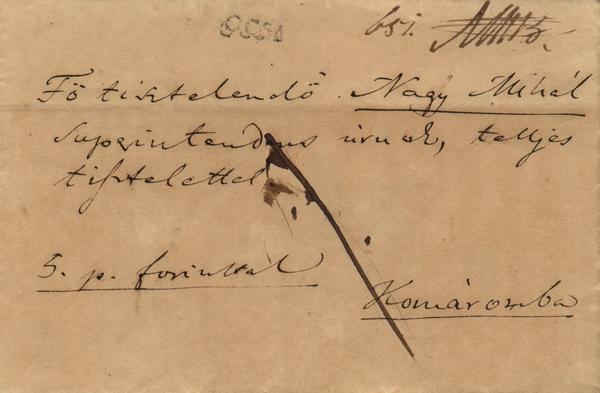 651.
Fő tisztelendő Nagy Mihál
superintendens úrnak, teljes
tisztelettel
5. p. forinttal
Komáromba